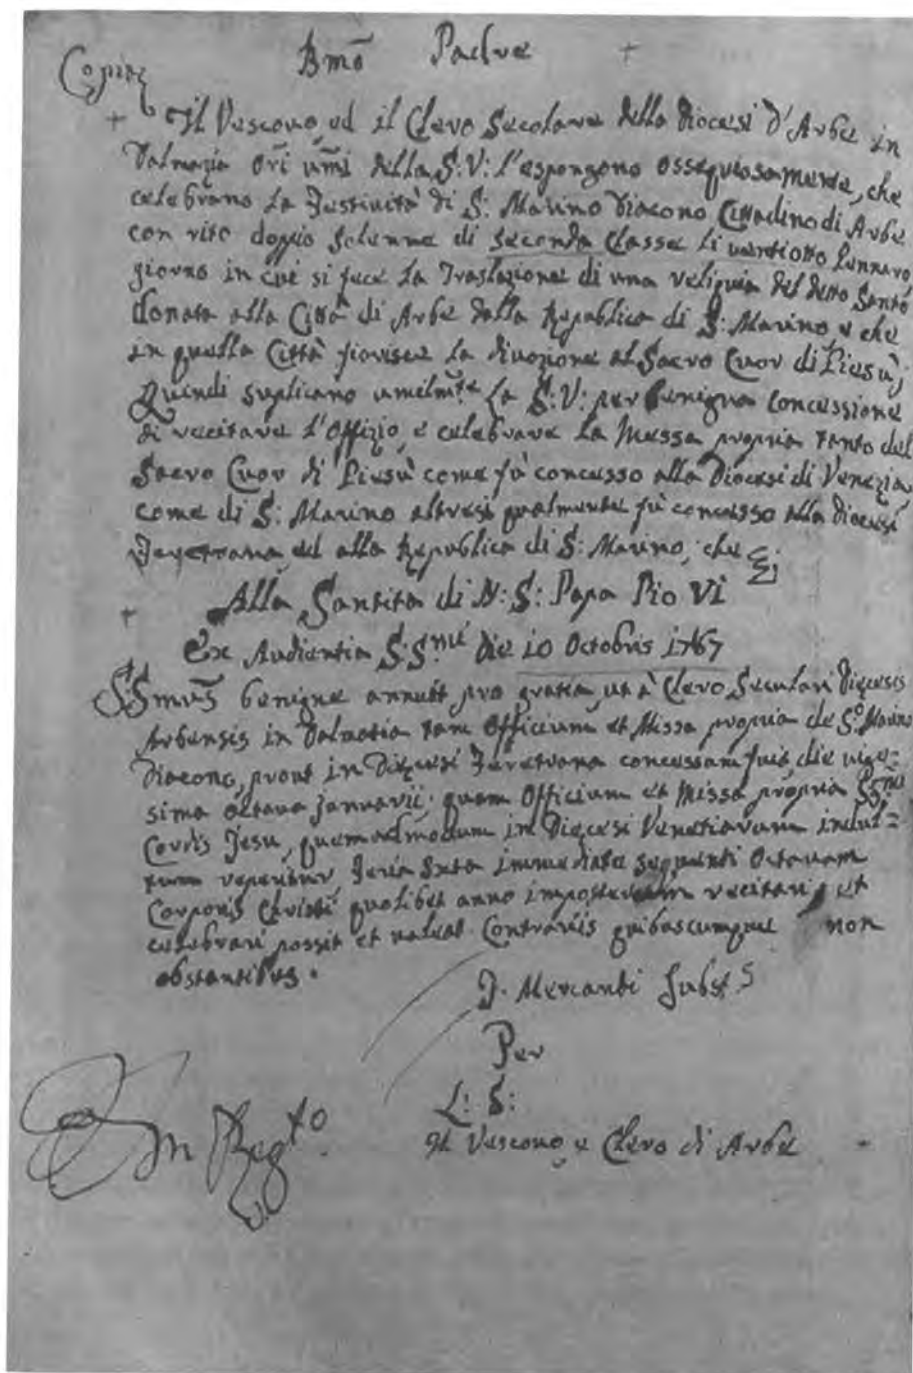 Copia
Bmõ Padre
Il Vescovo, ed il Clero Secolare della Diocesi d'Arbe in
Dalmazia Orĩ umĩ della S:V: l'espongono ossequiosamente, che
celebrano la Festività di S: Marino Diacono Cittadino di Arbe
con rito doppio solenne di seconda Classe li ventiotto Gennaro
giorno in cui si fece la Traslazione di una reliquia del detto Santo
donata alla Città di Arbe dalla Republica di S: Marino e che
in quella Città fiorisce la divozione al Sacro Cuor di Giesù;
Quindi suplicano umilm.te la S:V: per benigna concessione
di recitare l'Offizio, e celebrare la Messa propria tanto del
Sacro Cuor di Giesù come fù concesso alla Diocesi di Venezia,
come di S: Marino altresì qualmente fù concesso alla Diocesi
Feretrana, ed alla Republica di S: Marino, che
Alla Santità di N: S: Papa Pio VI
Ex Audientia S:S.mi die 10 Octobris 1767
SSmus benigne annuit pro gratia, ut à Clero Seculari Diecesis
Arbensis in Dalmatia tam Officium et Missa propria de S.o Marino
Diacono, prout in Diecesi Feretrana concessam fuit, die vige=
sima octava Januarii; quam Officium et Missa propria SS.mi
Cordis Jesu, quemadmodum in Diecesi Venetiarum indul=
tum reperitur, Feria sexta immediate sequenti Octavam
Corporis Christi quolibet anno imposterum recitari, et
celebrari possit et valeat. Contrariis quibuscumque non
obstantibus.
J. Mercanti Subst.s
Per
L: S:
Il Vescovo, e Clero di Arbe
In Reg.to